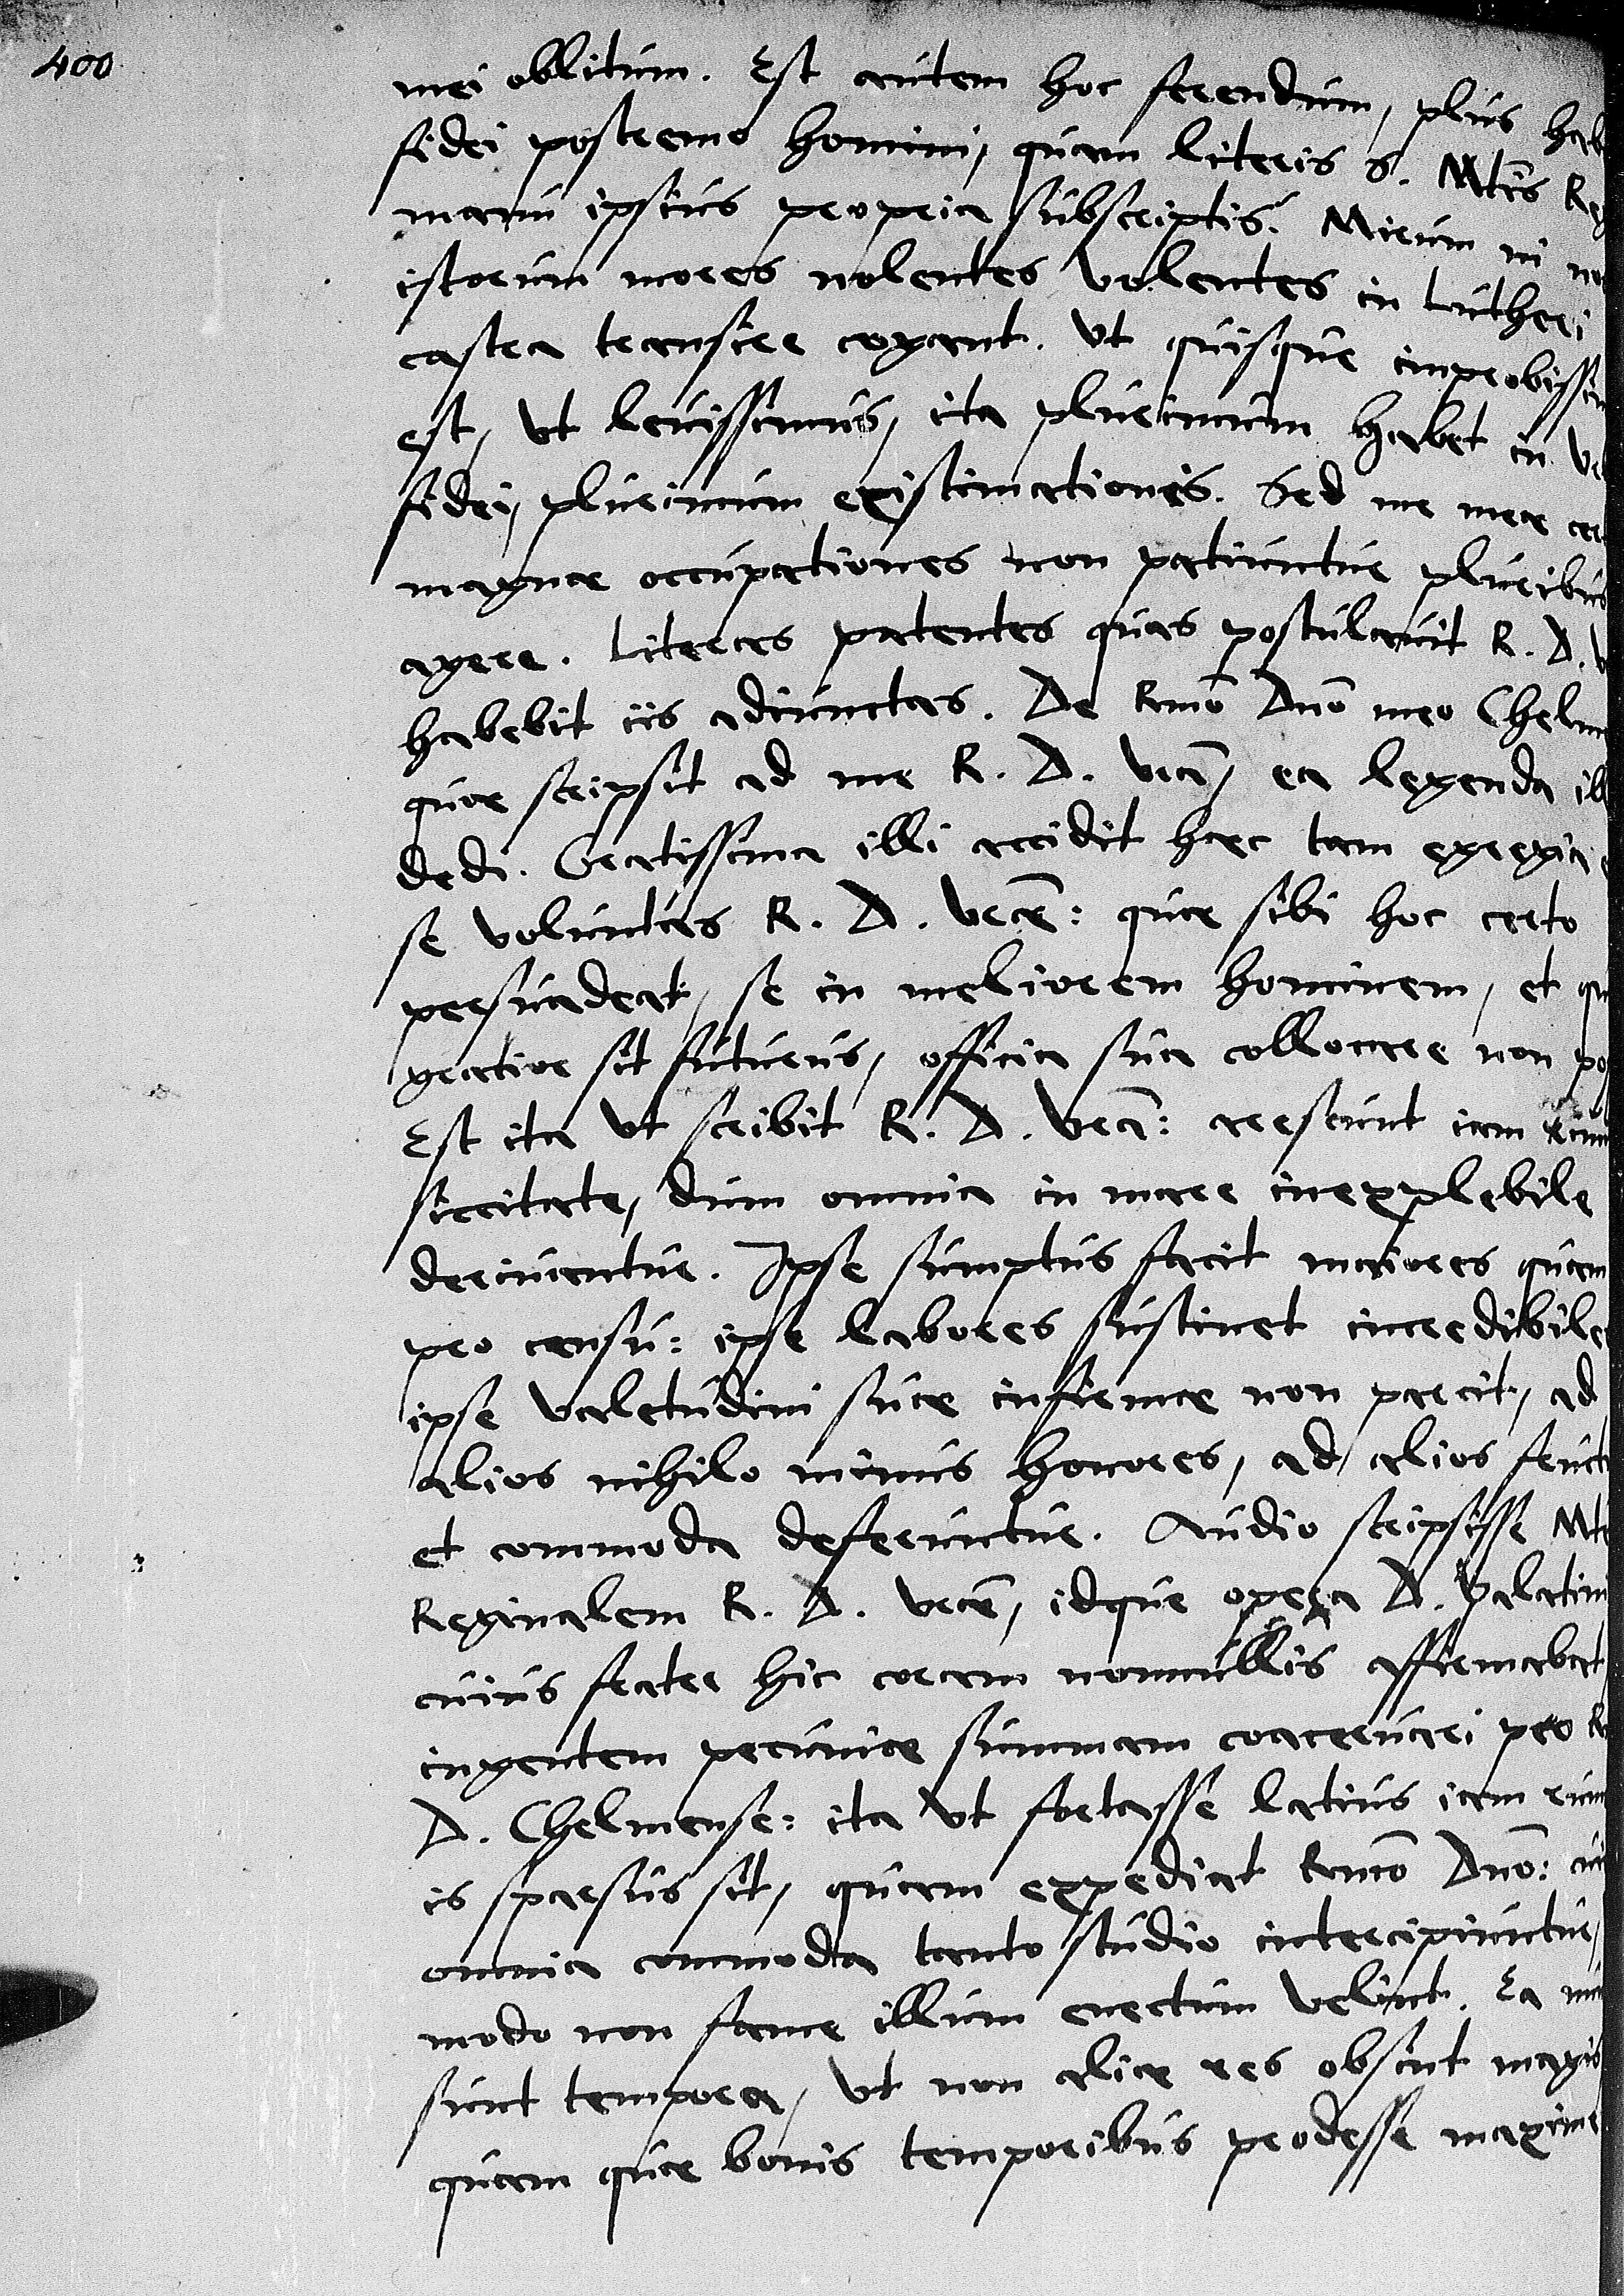 400
mei oblitum. Est autem hoc ferendum, plus
fidei postremo homini, quam literis S. Mtis
manu ipsius propria subscriptis? Mirum ni
istorum mores nolentes volentes in Lutheri
castra transire cogant. Ut quisque
est, ut levissimus, ita plurimum habet in
fidei, plurimum existimationis. Sed me meae
magnae occupationes non patiuntur pluribus
agere. Literas patentes quas postulavit R. D.
habebit iis adiunctas. De Rmo Dno meo
quae scripsit ad me R. D. Vra, ea legenda
dedi. Gratissima illi accidit haec tam egregia
se voluntas R. D. Vrae: quae sibi hoc certo
persuadeat, se in meliorem hominem, et
gratior sit futurus, officia sua collocare non
Est ita ut scribit R. D. Vra: arescunt iam
siccitate, dum omnia in mare inexplebile
derivantur. Ipse sumptus facit maiores quam
pro censu: ipse labores sustinet
ipse valetudini suae infirmae non parcit, ad
alios nihilo minus honores, ad alios
et commoda deferuntur. Audio scripsisse
Reginalem R. D. Vrae, idque opera D. Palatini
cuius frater hic coram nonnullis affirmabat
ingentem pecuniae summam coacervari pro
D. Chelmense: ita ut fortasse latius iam
is sparsus sit, quam expediat Rmo Dno:
omnia commoda tanto studio intercipiuntur,
modo non fame illum enectum velint. Ea
sunt tempora, ut non aliae res obsint magis
quam quae bonis temporibus prodesse maxime